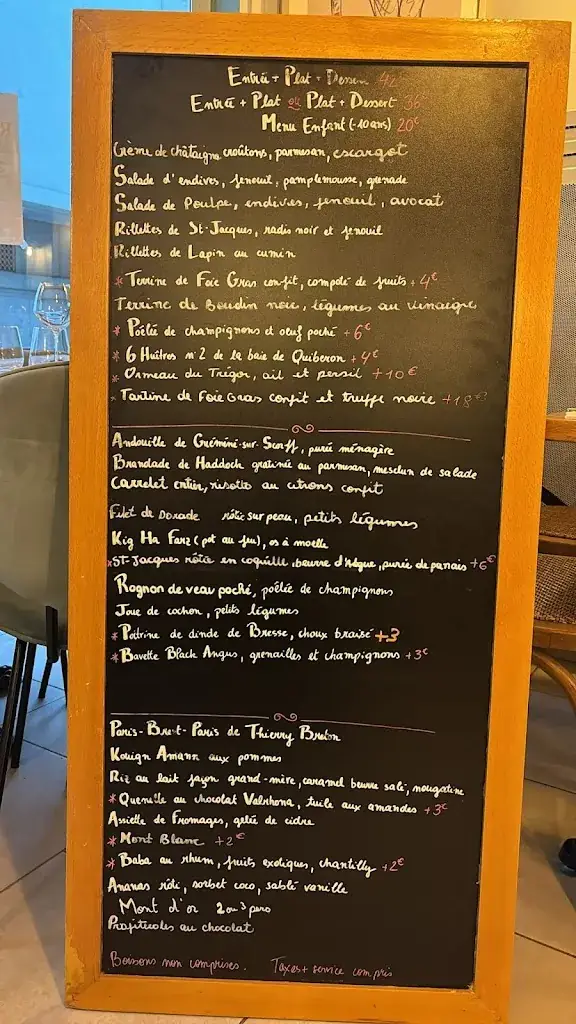 Entrée + Plat + Dessert 42
Entrée + Plat ou Plat + Dessert 36
Menu Enfant (-10 ans) 20€
Crème de châtaigne croûtons, parmesan, escargot
Salade d'endives, fenouil, pamplemousse, grenade
Salade de Poulpe, endives, fenouil, avocat
Rillettes de St-Jacques, radis noir et fenouil
Rillettes de Lapin au cumin
* Terrine de Foie Gras confit, compoté de fruits + 4€
Terrine de Boudin noir, légumes au vinaigre
* Poêlée de champignons et oeuf poché + 6€
* 6 Huîtres n°2 de la baie de Quiberon + 4€
* Ormeau du Trégor, ail et persil + 10€
* Tartine de Foie Gras confit et truffe noire + 18€
Andouille de Guéméné-sur-Scorff, purée ménagère
Brandade de Haddock gratinée au parmesan, mesclun de salade
Carrelet entier, risotto au citrons confit
Filet de Dorade rôtie sur peau, petits légumes
Kig Ha Farz (pot au feu), os à moelle
* St-Jacques rôtie en coquille, beurre d'algue, purée de panais + 6€
Rognon de veau poché, poêlée de champignons
Joue de cochon, petits légumes
* Poitrine de dinde de Bresse, choux braisé +3
* Bavette Black Angus, grenailles et champignons + 3€
Paris-Brest-Paris de Thierry Breton
Kouign Amann aux pommes
Riz au lait façon grand-mère, caramel beurre salé, nougatine
* Quenelle au chocolat Valrhona, tuile aux amandes + 3€
Assiette de Fromages, gelée de cidre
* Mont Blanc + 2€
* Baba au rhum, fruits exotiques, chantilly + 2€
Ananas rôti, sorbet coco, sablé vanille
Mont d'or 2 ou 3 pers
Profiteroles au chocolat
Boissons non comprises. Taxes + service compris